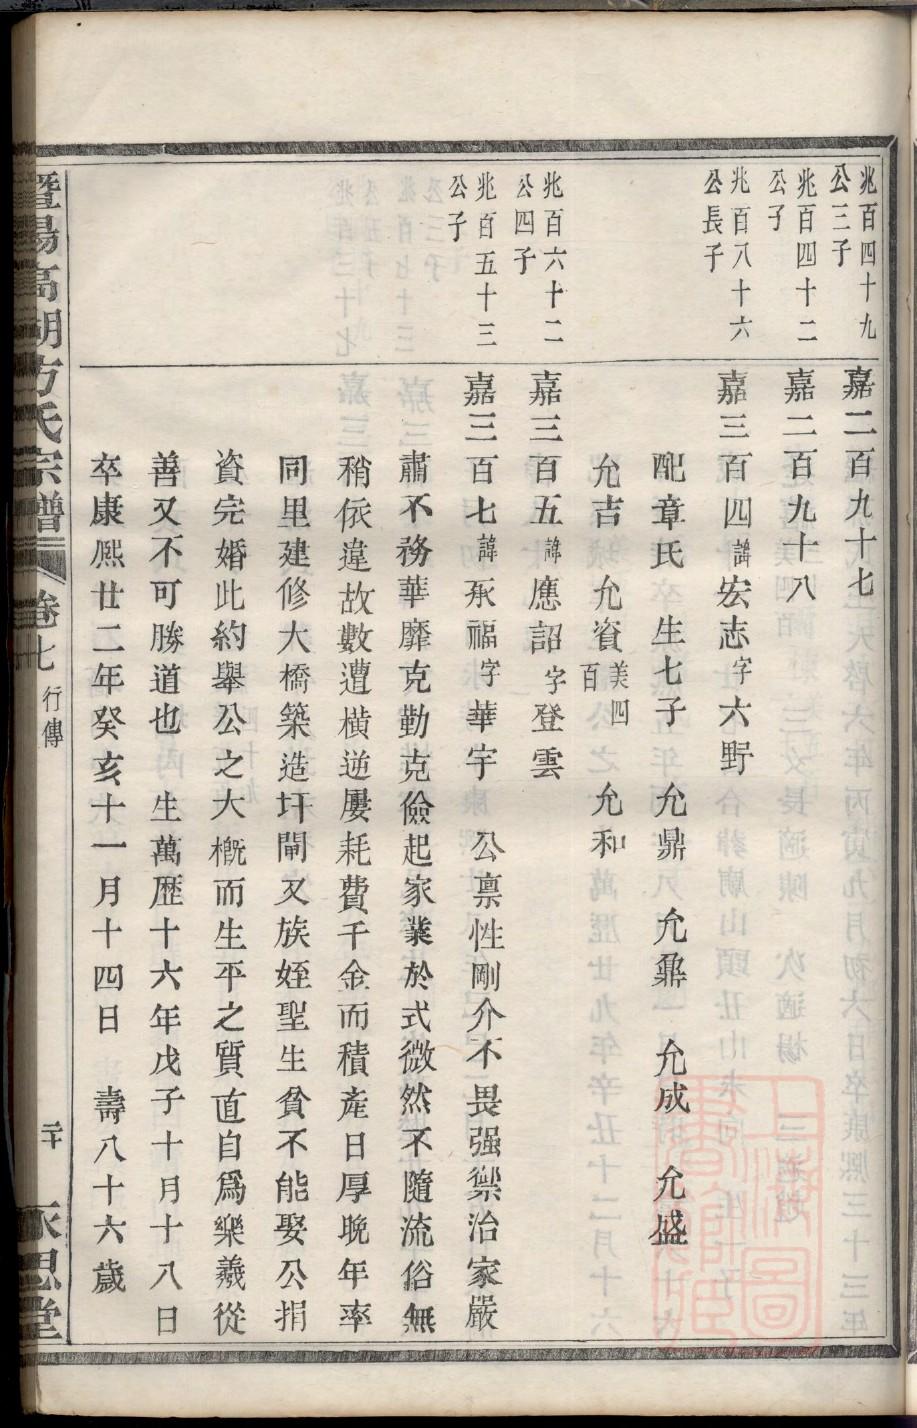 兆百四十九
公三子
嘉二百九十七
兆百四十二
公子
嘉二百九十八
兆百八十六
公長子
嘉三百四諱宏志字六野
配章氏 生七子 允鼎 允鼐 允成 允盛
允吉 允資美四百 允和
兆百六十二
公四子
嘉三百五諱應詔字登雲
兆百五十三
公子
嘉三百七諱承福字華宇 公禀性剛介不畏强禦治家嚴
肅不務華靡克勤克儉起家業於式微然不隨流俗無
稍依違故數遭橫逆屢耗費千金而積產日厚晚年率
同里建修大橋築造圩閘又族姪聖生貧不能娶公捐
資完婚此約舉公之大概而生平之質直自爲樂義從
善又不可勝道也 生萬歷十六年戊子十月十八日
卒康熈廿二年癸亥十一月十四日 壽八十六歲
暨陽高湖方氏宗譜 卷七 行傳 二十 永思堂